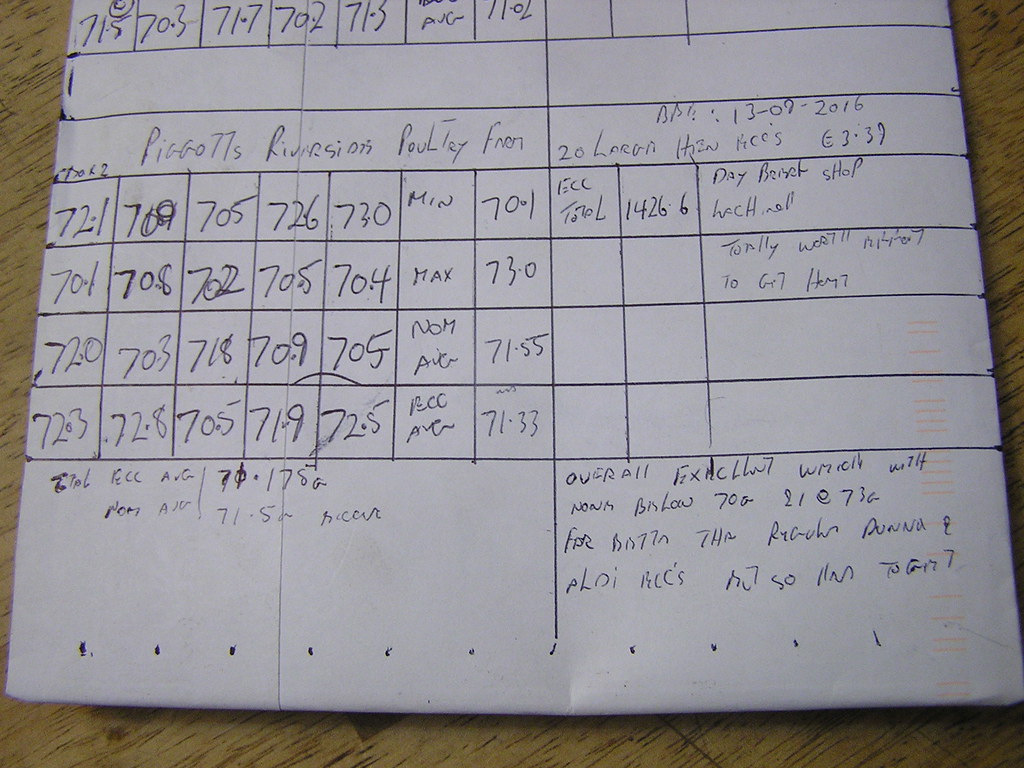 71.5 70.3 71.7 70.2 71.3 AVG 71.02
PIGGOTTS RIVERSIDE POULTRY FARM
BBE: 13-09-2016
20 LARGE HEN EGG'S £3.39
72.1 70.9 70.5 72.6 73.0 MIN 70.1 EGG TOTAL 1426.6 DAY BREAK SHOP
70.1 70.8 70.2 70.5 70.4 MAX 73.0 TOTALLY WORTH
TO GET THEM
72.0 70.3 71.8 70.9 70.5 NOM AVG 71.55
72.3 72.8 70.5 71.9 72.5 EGG AVG 71.33
TOTAL EGG AVG 71.175G
NOM AVG 71.5G
OVERALL EXCELLENT WHICH WITH
NONE BELOW 70G 21 @ 73G
FAR BETTER THE REGULAR &
ALDI EGG'S BUT SO HARD TO GET